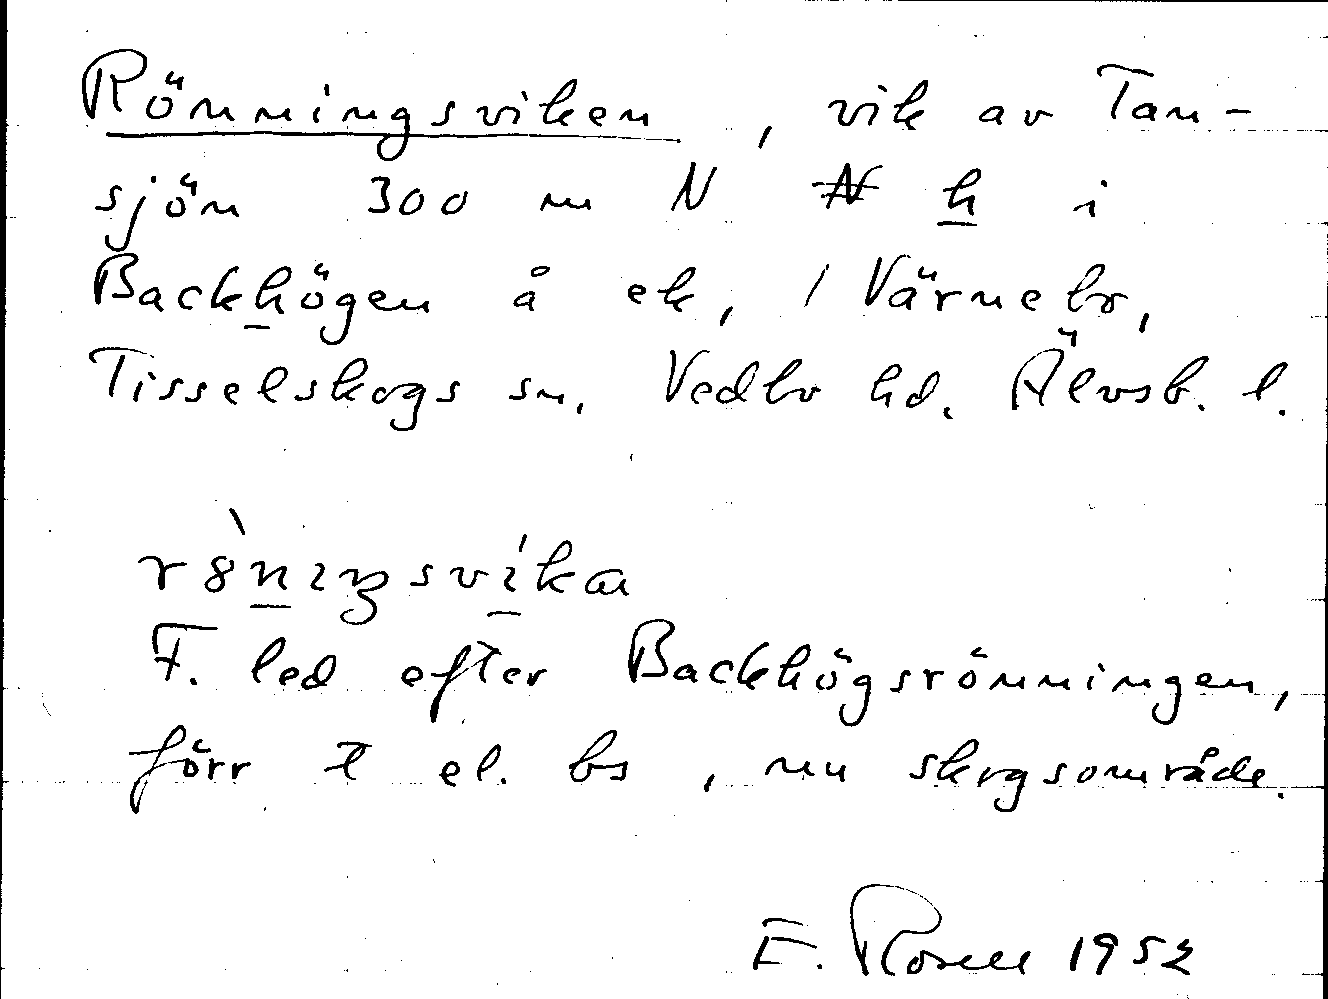 Rönningsviken, vik av Tan-
sjön 300 m N h i
Backhögen å ek, / Värnebo,
Tisselskogs sn, Vedbo hd. Älvsb. l.
F. led efter Backhögsrönningen,
förr t el. bs, nu skogsområde.
E. Rosell 1952